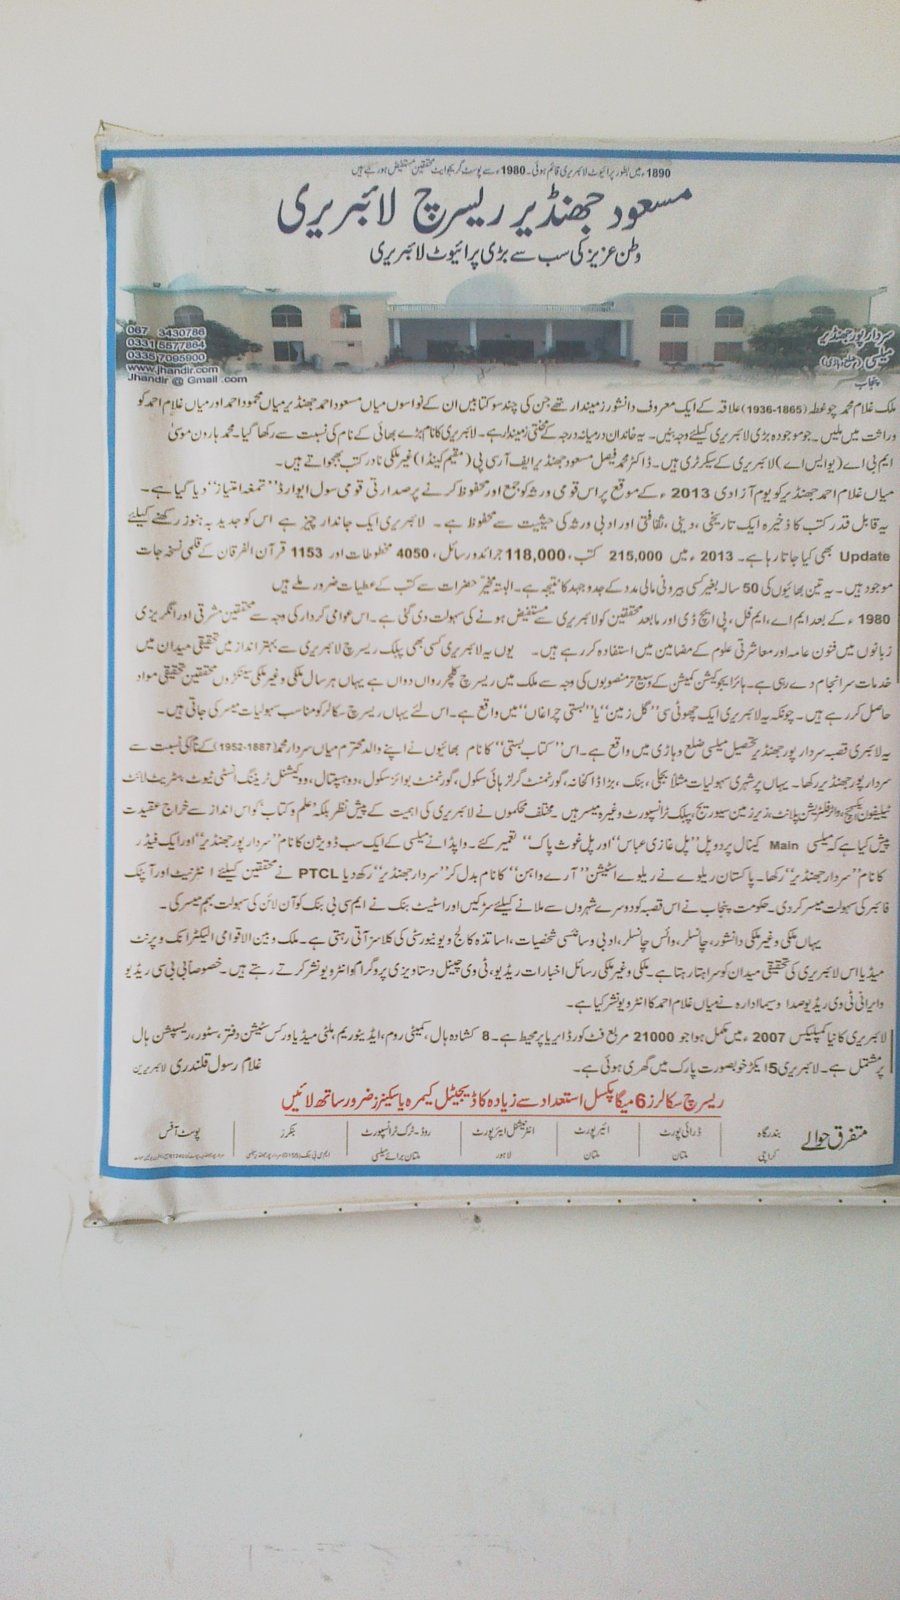 1890ء میں بطور پرائیوٹ لائبریری قائم ہوئی۔ 1980ء سے پوسٹ گریجوایٹ محققین مستفیض ہورہے ہیں
مسعود جھنڈیر ریسرچ لائبریری
وطن عزیز کی سب سے بڑی پرائیوٹ لائبریری
067 3430786
0331 5577864
0335 7095900
www.jhandir.com
Jhandir @ Gmail .com
سردار پور جھنڈیر
میلسی (ضلع وہاڑی)
پنجاب
ملک غلام محمد چوغطہ (1865-1936) علاقہ کے ایک معروف دانشور زمیندار تھے جن کی چند سو کتابیں ان کے نواسوں میاں مسعود احمد جھنڈیر میاں محمود احمد اور میاں غلام احمد کو
وراثت میں ملیں۔ جو موجودہ بڑی لائبریری کیلئے وجہ بنیں۔ یہ خاندان درمیانہ درجہ کے محنتی زمیندار ہے۔ لائبریری کا نام بڑے بھائی کے نام کی نسبت سے رکھا گیا۔ محمد ہارون موسیٰ
ایم بی اے (یو ایس اے) لائبریری کے سیکرٹری ہیں۔ ڈاکٹر محمد فیصل مسعود جھنڈیر ایف آر سی پی (مقیم کینڈا) غیر ملکی نادر کتب بھجواتے ہیں۔
میاں غلام احمد جھنڈیر کو یوم آزادی 2013ء کے موقع پر اس قومی ورثہ کو جمع اور محفوظ کرنے پر صدارتی قومی سول ایوارڈ "تمغہ امتیاز" دیا گیا ہے۔
یہ قابل قدر کتب کا ذخیرہ ایک تاریخی، دینی، ثقافتی اور ادبی ورثہ کی حیثیت سے محفوظ ہے۔ لائبریری ایک جاندار چیز ہے اس کو جدید بہ ہنوز رکھنے کیلئے
Update بھی کیا جاتا رہا ہے۔ 2013ء میں 215,000 کتب، 118,000 جرائد و رسائل، 4050 مخطوطات اور 1153 قرآن الفرقان کے قلمی نسخہ جات
موجود ہیں۔ یہ تین بھائیوں کی 50 سالہ بغیر کسی بیرونی مالی مدد کے جدوجہد کا نتیجہ ہے۔ البتہ مخیر حضرات سے کتب کے عطیات ضرور ملے ہیں
1980ء کے بعد ایم اے، ایم فل، پی ایچ ڈی اور مابعد محققین کو لائبریری سے مستفیض ہونے کی سہولت دی گئی ہے۔ اس عوامی کردار کی وجہ سے محققین مشرقی اور انگریزی
زبانوں میں فنون عامہ اور معاشرتی علوم کے مضامین میں استفادہ کر رہے ہیں۔ یوں یہ لائبریری کسی بھی پبلک ریسرچ لائبریری سے بہتر انداز میں تحقیقی میدان میں
خدمات سرانجام دے رہی ہے۔ ہائر ایجوکیشن کمیشن کے وسیع تر منصوبوں کی وجہ سے ملک میں ریسرچ کلچر رواں دواں ہے یہاں ہر سال ملکی و غیر ملکی سینکڑوں محققین تحقیقی مواد
حاصل کر رہے ہیں۔ چونکہ یہ لائبریری ایک چھوٹی سی "گل زمین" یا "بستی چراغاں" میں واقع ہے۔ اس لئے یہاں ریسرچ سکالر کو مناسب سہولیات میسر کی جاتی ہیں۔
یہ لائبریری قصبہ سردار پور جھنڈیر تحصیل میلسی ضلع وہاڑی میں واقع ہے۔ اس "کتاب بستی" کا نام بھائیوں نے اپنے والد محترم میاں سردار محمد (1887-1952) کے نام کی نسبت سے
سردار پور جھنڈیر رکھا۔ یہاں پر شہری سہولیات مثلاً بجلی، بنک، بڑا ڈاکخانہ، گورنمنٹ گرلز ہائی سکول، گورنمنٹ بوائز سکول، دو ہسپتال، ووکیشنل ٹریننگ انسٹی ٹیوٹ، سٹریٹ لائٹ
ٹیلیفون ایکسچینج، واٹر فلٹریشن پلانٹ، زیر زمین سیوریج، پبلک ٹرانسپورٹ وغیرہ میسر ہیں۔ مختلف محکموں نے لائبریری کی اہمیت کے پیش نظر بلکہ علم و کتاب کو اس انداز سے خراج عقیدت
پیش کیا ہے کہ میلسی Main کینال پر دو پل "پل غازی عباس" اور پل غوث پاک" تعمیر کئے۔ واپڈا نے میلسی کے ایک سب ڈویژن کا نام "سردار پور جھنڈیر" اور ایک فیڈر
کا نام "سردار جھنڈیر" رکھا۔ پاکستان ریلوے نے ریلوے اسٹیشن "آرے واہن" کا نام بدل کر "سردار جھنڈیر" رکھ دیا PTCL نے محققین کیلئے انٹرنیٹ اور آپٹک
فائبر کی سہولت میسر کر دی۔ حکومت پنجاب نے اس قصبہ کو دوسرے شہروں سے ملانے کیلئے سڑکیں اور اسٹیٹ بنک نے ایم سی بی بنک کو آن لائن کی سہولت بہم میسر کی۔
یہاں ملکی و غیر ملکی دانشور، چانسلر، وائس چانسلر، ادبی و سائنسی شخصیات، اساتذہ کالج و یونیورسٹی کی کلاسز آتی رہتی ہے۔ ملک و بین الاقوامی الیکٹرانک و پرنٹ
میڈیا اس لائبریری کی تحقیقی میدان کو سراہتا رہتا ہے۔ ملکی و غیر ملکی رسائل اخبارات ریڈیو، ٹی وی چینل دستاویزی پروگرام کو انٹرویو نشر کرتے رہتے ہیں۔ خصوصاً بی بی سی ریڈیو
وایرانی ٹی وی ریڈیو صدا وسیما ادارہ نے میاں غلام احمد کا انٹرویو نشر کیا ہے۔
لائبریری کا نیا کمپلیکس 2007ء میں مکمل ہوا جو 21000 مربع فٹ کورڈ ایریا پر محیط ہے۔ 8 کشادہ ہال، کمیٹی روم، ایڈیٹوریم، ملٹی میڈیا ورکس سٹیشن دفتر، سٹور، ریسپشن ہال
پر مشتمل ہے۔ لائبریری 5 ایکڑ خوبصورت پارک میں گھری ہوئی ہے۔ غلام رسول قلندری لائبریرین
ریسرچ سکالرز 6 میگا پکسل استعداد سے زیادہ کا ڈیجیٹل کیمرہ یا سکینر ضرور ساتھ لائیں
متفرق حوالے
بندرگاہ
کراچی
ڈرائی پورٹ
ملتان
ائیرپورٹ
ملتان
انٹرنیشنل ایئرپورٹ
لاہور
روڈ۔ ٹرک ٹرانسپورٹ
ملتان برائے میلسی
بنکرز
پوسٹ آفس